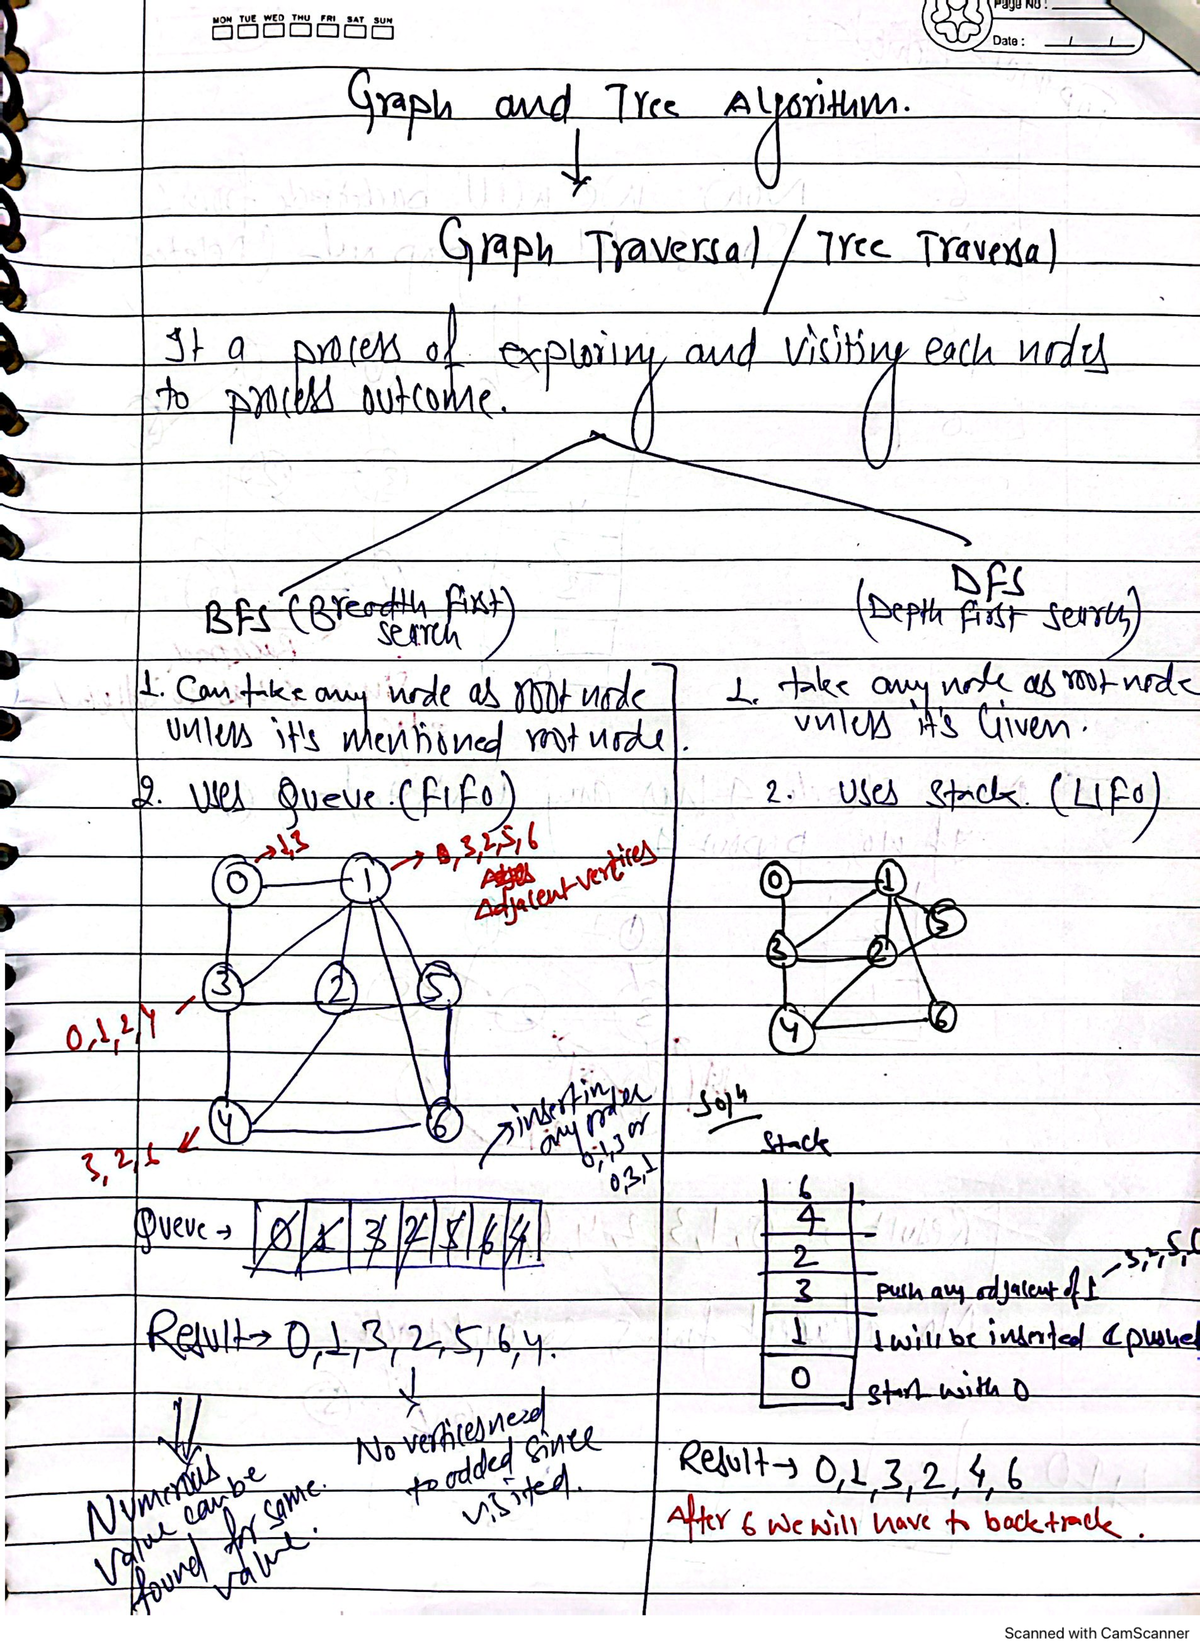 MON TUE WED THU FRI SAT SUN
Page No :
Date :
Graph and Tree Algorithm.
Graph Traversal / Tree Traversal
It a process of exploring and visiting each nodes
to process outcome.
BFS (Breadth First
search)
1. Can take any node as root node
unless it's mentioned root node.
2. Uses Queue. (FIFO)
0 → 1,3
1 → 0, 3, 2, 5, 6
Adjacent vertices
3 2 5
0, 1, 2, 4
4 6
3, 2, 6
insert in
any order
0,1,3 or
0,3,1
Queue → 0 1 3 2 5 6 4
Result → 0, 1, 3, 2, 5, 6, 4.
Numerous
value can be
found for same
value.
No vertices need
to added since
visited.
DFS
(Depth first search)
1. take any node as root node
unless it's Given.
2. Uses Stack. (LIFO)
0 1
5
3 2
4 6
Soln
Stack
6
4
2
3 push any adjacent of 1 3, 2, 5, 6
1 1 will be inserted & pushed
0 Start with 0
Result → 0, 1, 3, 2, 4, 6
After 6 we will have to backtrack.
Scanned with CamScanner